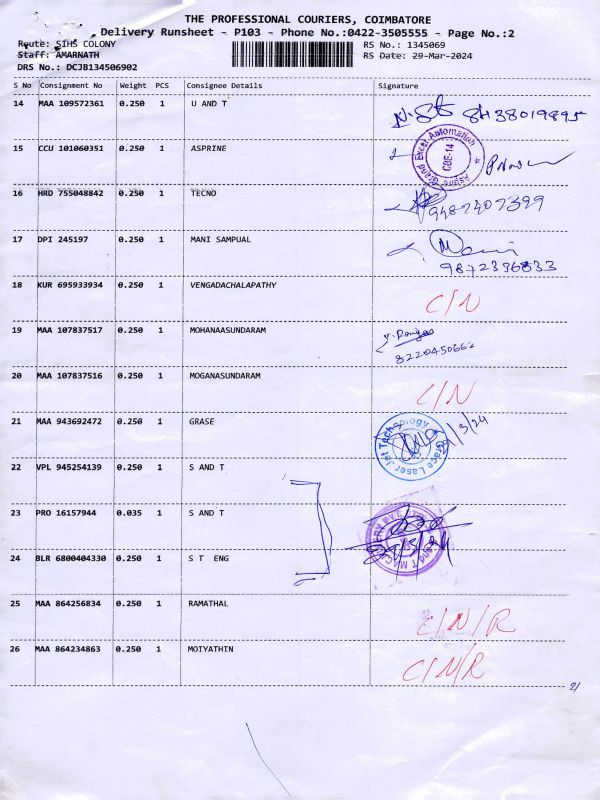 THE PROFESSIONAL COURIERS, COIMBATORE
Delivery Runsheet - P103 - Phone No.:0422-3505555 - Page No.:2
Route: SIHS COLONY RS No.: 1345069
Staff: AMARNATH RS Date: 29-Mar-2024
DRS No.: DCJB134506902
S No Consignment No Weight PCS Consignee Details Signature
14 MAA 109572361 0.250 1 U AND T 8438019895
15 CCU 101060351 0.250 1 ASPRINE Aspire Grand Excel Automation CBE-14
16 HRD 755048842 0.250 1 TECNO 9487407399
17 DPI 245197 0.250 1 MANI SAMPUAL Mani
9872396833
18 KUR 695933934 0.250 1 VENGADACHALAPATHY C/N
19 MAA 107837517 0.250 1 MOHANAASUNDARAM
8220450662
20 MAA 107837516 0.250 1 MOGANASUNDARAM C/N
21 MAA 943692472 0.250 1 GRASE Grace Laser Jet Technology /3/24
22 VPL 945254139 0.250 1 S AND T
23 PRO 16157944 0.035 1 S AND T
24 BLR 6800404330 0.250 1 S T ENG
25 MAA 864256834 0.250 1 RAMATHAL C/N/R
26 MAA 864234863 0.250 1 MOIYATHIN C/N/R
2/